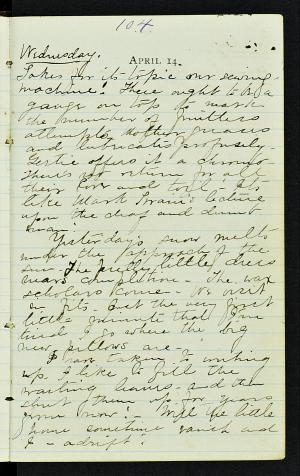 104
Wednesday.
APRIL 14.
Takes for its topic our sewing
machine. There ought to be a
gauge on top to mark
the number of fruitless
attempts. Mother greases
and lubricates profusely.
Gertie offers it a chromo
There's no return for all
their love and toil. Its
like Mark Twain's lecture
upon the deaf and dumb
man.
Yesterday's snow melts
under the approach of the
sun. The pretty little dress
nears completion. The
scholars come. We visit
in bits. Just the very first
little minute that
I go where the big
new pillows are.
I am taking to writing
up. I like to fill the
waiting hours and then
shut them up for years
some now. Will the little
some sometime vanish and
I adrift?